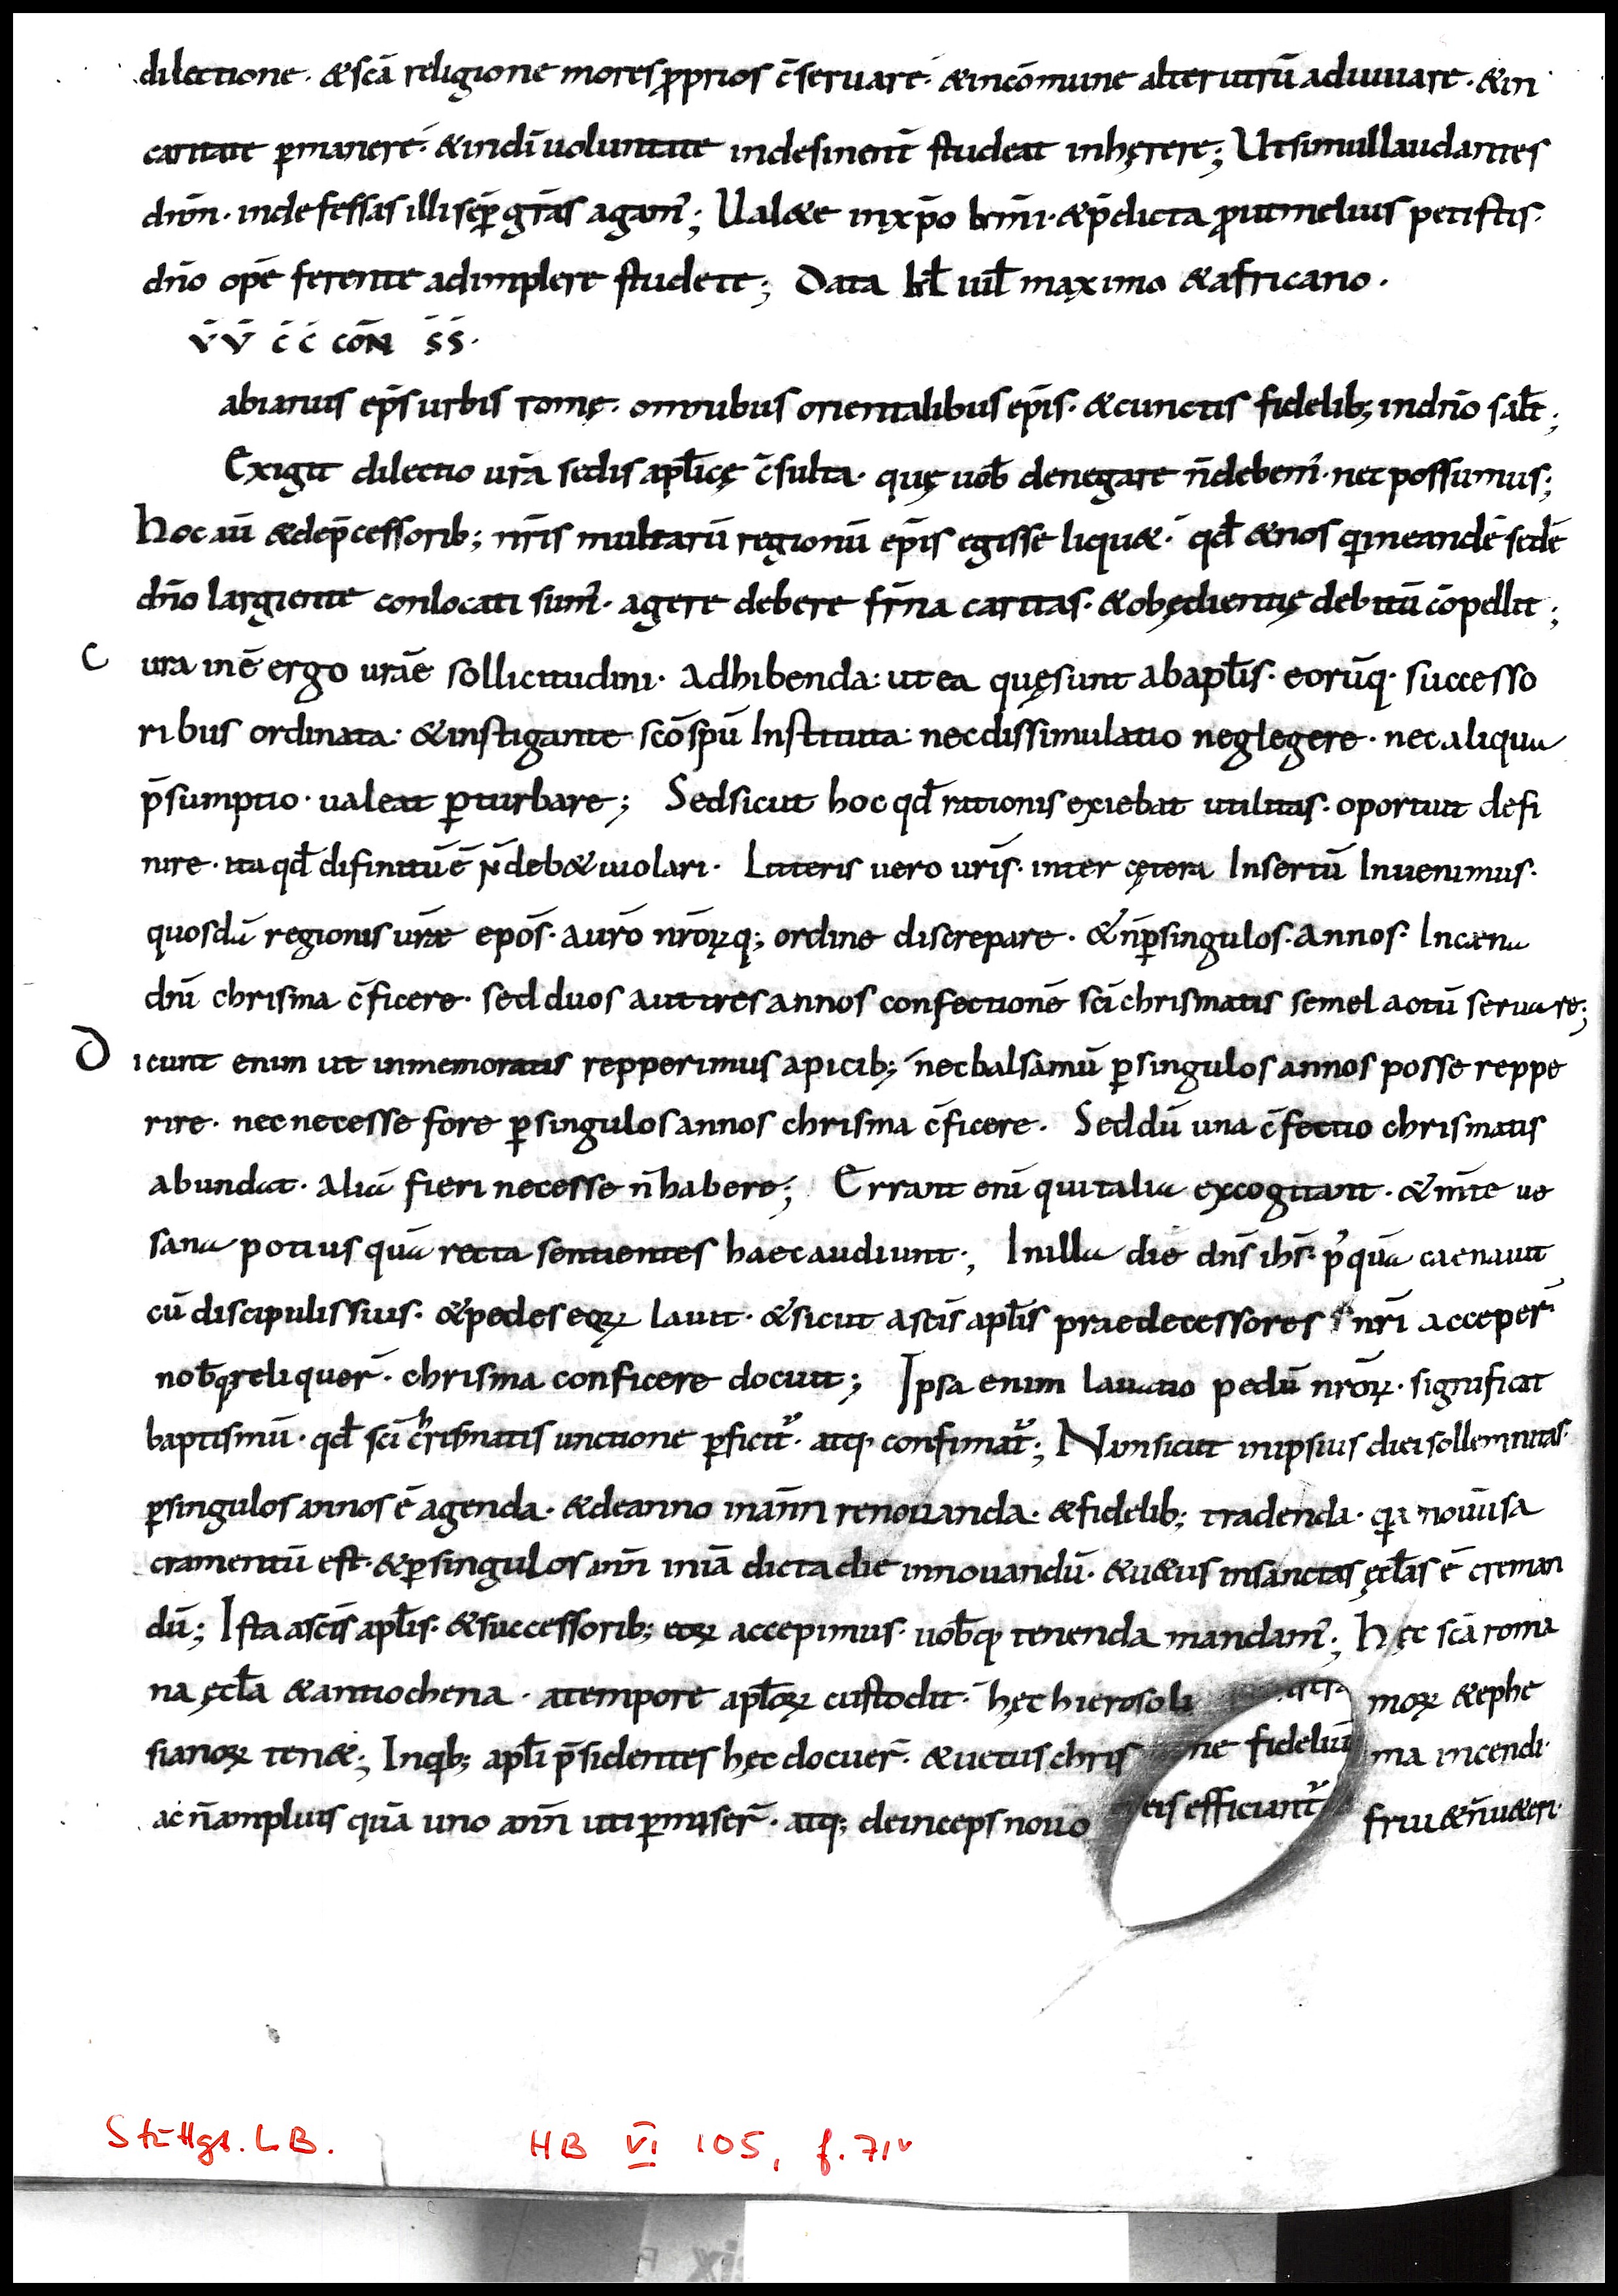 dilectione · & scā religione mores ꝓprios c̄seruare · & incōmune alterutrū adiuuare · & in
caritate ꝑmanere · & indī uoluntate indesinent̄ studeat inhęrere; Ut simul laudantes
dnm̄ · indefessas illi sēꝑ grās agam'; Ualæte inxp̄o kmī · & p̄dicta ꝓut melius petistis ·
dn̄o opē ferente adimplere studete; Data kł iuł maximo & africano ·
v̄ v̄ c̄ c̄ coн̄ s̄s̄ ·
abianus ep̄s urbis romę · omnibus orientalibus ep̄is · & cunctis fidelib; indn̄o salt̄;
Exigit dilectio ur̄a sedis apłicę c̄sulta · quę uob̄ denegare n̄debem' · nec possumus;
hoc aū & dep̄cessorib; nr̄is multarū regionū ep̄is egisse liqu& · qd̄ & nos qimeandē sedē
dn̄o largiente conlocati sum' · agere debere fr̄na caritas · & obędientię debitū cōpellit;
C ura inē ergo urāe sollicitudini · adhibenda · ut ea quę sunt abapłis · eorūq · successo
ribus ordinata · & instigante scō spū Instituta · nec dissimulatio neglegere · nec aliqua
p̄sumptio · ualeat ꝑturbare; Sed sicut hoc qd̄ rationis exiebat utilitas · oportuit defi
nire · ita qd̄ difinitū ē n̄ deb& uiolari · Litteris uero ur̄is · inter cętera Insertū Inuenimus ·
quosdā regionis ur̄ae epōs · aur̄o nr̄oꝝq; ordine discrepare · & n̄ꝑsingulos · annos · Incaena
dn̄i chrisma c̄ficere · sed duos aut tres annos confectionē sc̄i chrismatis semel actū seruare;
D icunt enim ut inmemoratis repperimus apicib; nec balsamū ꝑsingulos annos posse reppe
rire · nec necesse fore ꝑsingulos annos chrisma c̄ficere · Sed dū una c̄fectio chrismatis
abundat · aliā fieri necesse n̄ habere; Errant enī qui talia excogitant · & m̄te ue
sana potius quā recta sentientes haec audiunt; In illa die dn̄s ih̄s · p'quā caenauit
cū discipulis suis · & pedes eoꝝ lauit · & sicut ascīs apłis praedecessores nr̄i acceper̄
nob̄q reliquer̄ · chrisma conficere docuit; Ipsa enim lauatio pedū nr̄oꝝ · significat
baptismū · qd̄ sc̄i chrismatis unctione ꝑficit᷑ · atq · confimat᷑; Nam sicut inipsius diei sollemnitas ·
ꝑsingulos annos ē agenda · & deanno inann̄ renouanda · & fidelib; tradenda · qa nouūsa
cramentū est · & ꝑsingulos ann̄ iniā dicta die innouandū · & u&us insanctas ęcłas ē creman
dū; Ista ascīs apłis · & successorib; eoꝝ accepimus · uob̄q tenenda mandam'; hęc scā roma
na ęcła & antiochena · atempore apłoꝝ custodit · hęc hierosoli moꝝ & ephe
sianoꝝ ten&; Inqib; apłi p̄sidentes hęc docuer̄ · & uetus chris ma incendi ·
ac n̄amplius quā uno ann̄ uti ꝑmiser̄ · atq; deinceps nouo frui & n̄ u&eri ·
ne fideliū
eis efficiunt᷑
Stuttgt. LB. HB VI 105, f. 71v